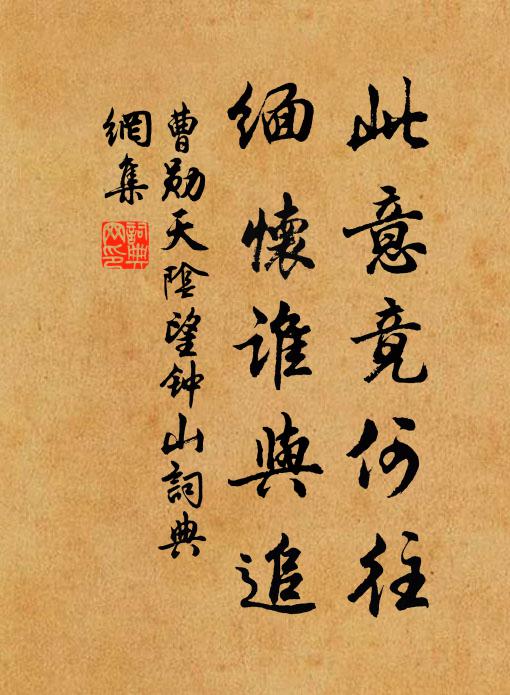 此意竟何往
缅懷誰與追
曹勋天陰望钟山詞典
網集
詞典
网印